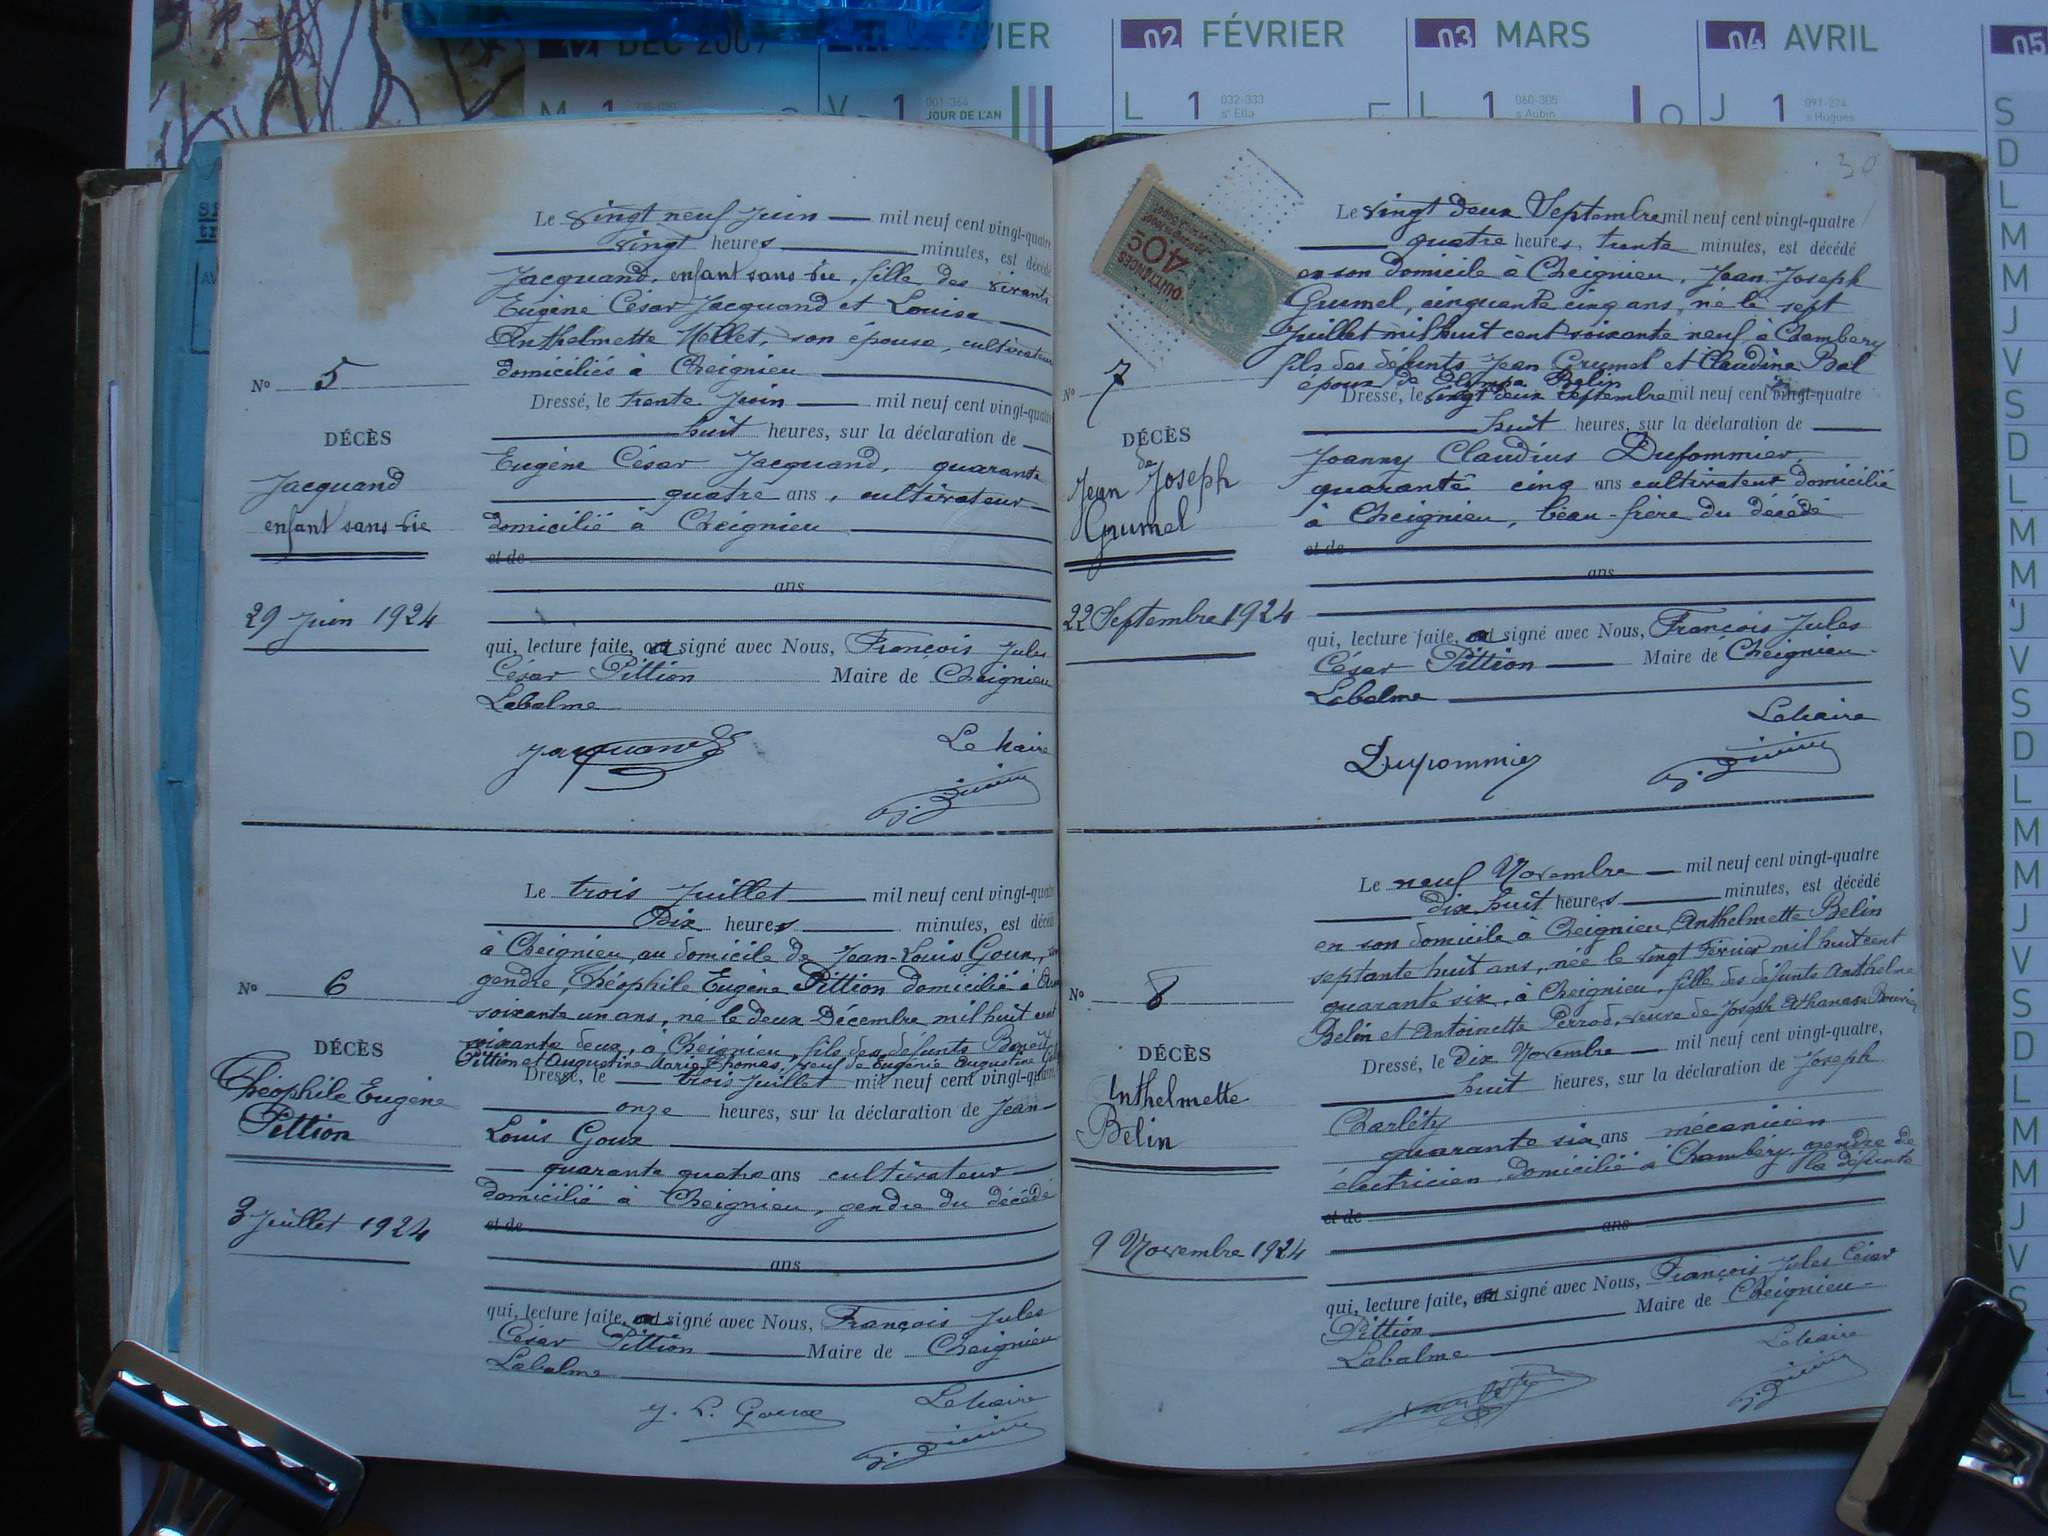 DEC 2009
VIER
02 FÉVRIER
03 MARS
04 AVRIL
05
M 1
V 1 001-364
JOUR DE L'AN
L 1 032-333
sᵗ Ella
L 1 060-305
s Aubin
J 1 091-274
s Hugues
Le vingt neuf Juin mil neuf cent vingt-quatre
vingt heures minutes, est décédé
Jacquand, enfant sans vie, fille des vivants
Eugène César Jacquand et Louise
Anthelmette Mollet, son épouse, cultivateurs
domiciliés à Cheignieu
Nº 5
Dressé, le trente Juin mil neuf cent vingt-quatre
huit heures, sur la déclaration de
DÉCÈS
Jacquand
enfant sans vie
Eugène César Jacquand, quarante
quatre ans, cultivateur
domicilié à Cheignieu
et de
ans
29 Juin 1924
qui, lecture faite, a signé avec Nous, François Jules
César Pittion Maire de Cheignieu
Labalme
Jacquand
Le Maire
Le trois Juillet mil neuf cent vingt-quatre
Dix heures minutes, est décédé
à Cheignieu au domicile de Jean-Louis Goux, son
gendre, Théophile Eugène Pittion domicilié à
soixante un ans, né le deux Décembre mil huit cent
soixante deux, à Cheignieu, fils des défunts Benoît
Pittion et Augustine Marie Thomas, veuf de Eugénie Augustine
Nº 6
Dressé, le trois Juillet mil neuf cent vingt-quatre
onze heures, sur la déclaration de Jean-
DÉCÈS
Théophile Eugène
Pittion
Louis Goux
quarante quatre ans cultivateur
domicilié à Cheignieu, gendre du décédé
et de
ans
3 Juillet 1924
qui, lecture faite, a signé avec Nous, François Jules
César Pittion Maire de Cheignieu
Labalme
J. L. Goux
Le Maire
30
QUITTANCES
40c
Le vingt deux Septembre mil neuf cent vingt-quatre
quatre heures, trente minutes, est décédé
en son domicile à Cheignieu, Jean-Joseph
Grumel, cinquante cinq ans, né le sept
Juillet mil huit cent soixante neuf à Chambéry
fils des défunts Jean Grumel et Claudine Bal
époux de Olympe Belin
Nº 7
Dressé, le vingt deux Septembre mil neuf cent vingt-quatre
huit heures, sur la déclaration de
DÉCÈS
de
Jean Joseph
Grumel
Joanny Claudius Dupommier,
quarante cinq ans cultivateur domicilié
à Cheignieu, beau-frère du décédé
et de
ans
22 Septembre 1924
qui, lecture faite, a signé avec Nous, François Jules
César Pittion Maire de Cheignieu-
Labalme
Dupommier
Le Maire
Le neuf Novembre mil neuf cent vingt-quatre
dix huit heures minutes, est décédé
en son domicile à Cheignieu Anthelmette Belin
septante huit ans, née le vingt Février mil huit cent
quarante six, à Cheignieu, fille des défunts Anthelme
Belin et Antoinette Perrod, veuve de Joseph Athanase Bouvier
Nº 8
Dressé, le Dix Novembre mil neuf cent vingt-quatre,
huit heures, sur la déclaration de Joseph
DÉCÈS
Anthelmette
Belin
Charléty
quarante six ans mécanicien
électricien domicilié à Chambéry, gendre de
la défunte
et de
ans
9 Novembre 1924
qui, lecture faite, a signé avec Nous, François Jules César
Pittion Maire de Cheignieu-
Labalme
Le Maire
S
D
L
M
M
J
V
S
D
L
M
M
J
V
S
D
L
M
M
J
V
S
D
L
M
M
J
V
S